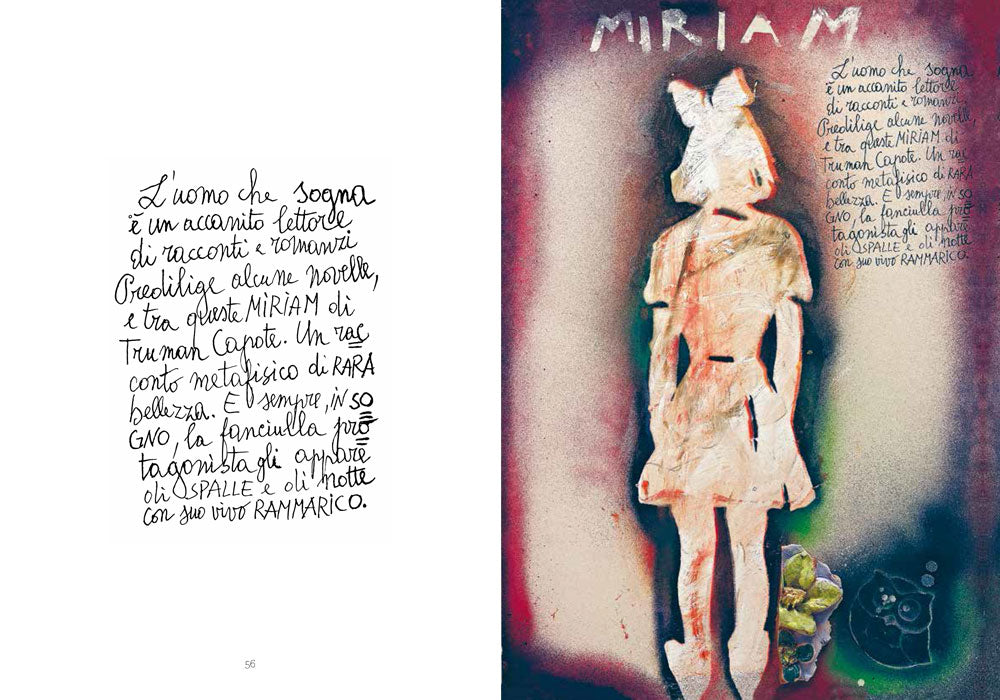 L'uomo che sogna
è un accanito lettore
di racconti e romanzi
Predilige alcune novelle,
e tra queste MÌRÌAM di
Truman Capote. Un rac
conto metafisico di RARA
bellezza. E sempre, IN SO
GNO, la fanciulla pro
tagonista gli appare
di SPALLE e di notte
con suo vivo RAMMARICO.
56
MIRIAM
L'uomo che sogna
è un accanito lettore
di racconti e romanzi
Predilige alcune novelle,
e tra queste MÌRÌAM di
Truman Capote. Un rac
conto metafisico di RARA
bellezza. E sempre, IN SO
GNO, la fanciulla pro
tagonista gli appare
di SPALLE e di notte
con suo vivo RAMMARICO.